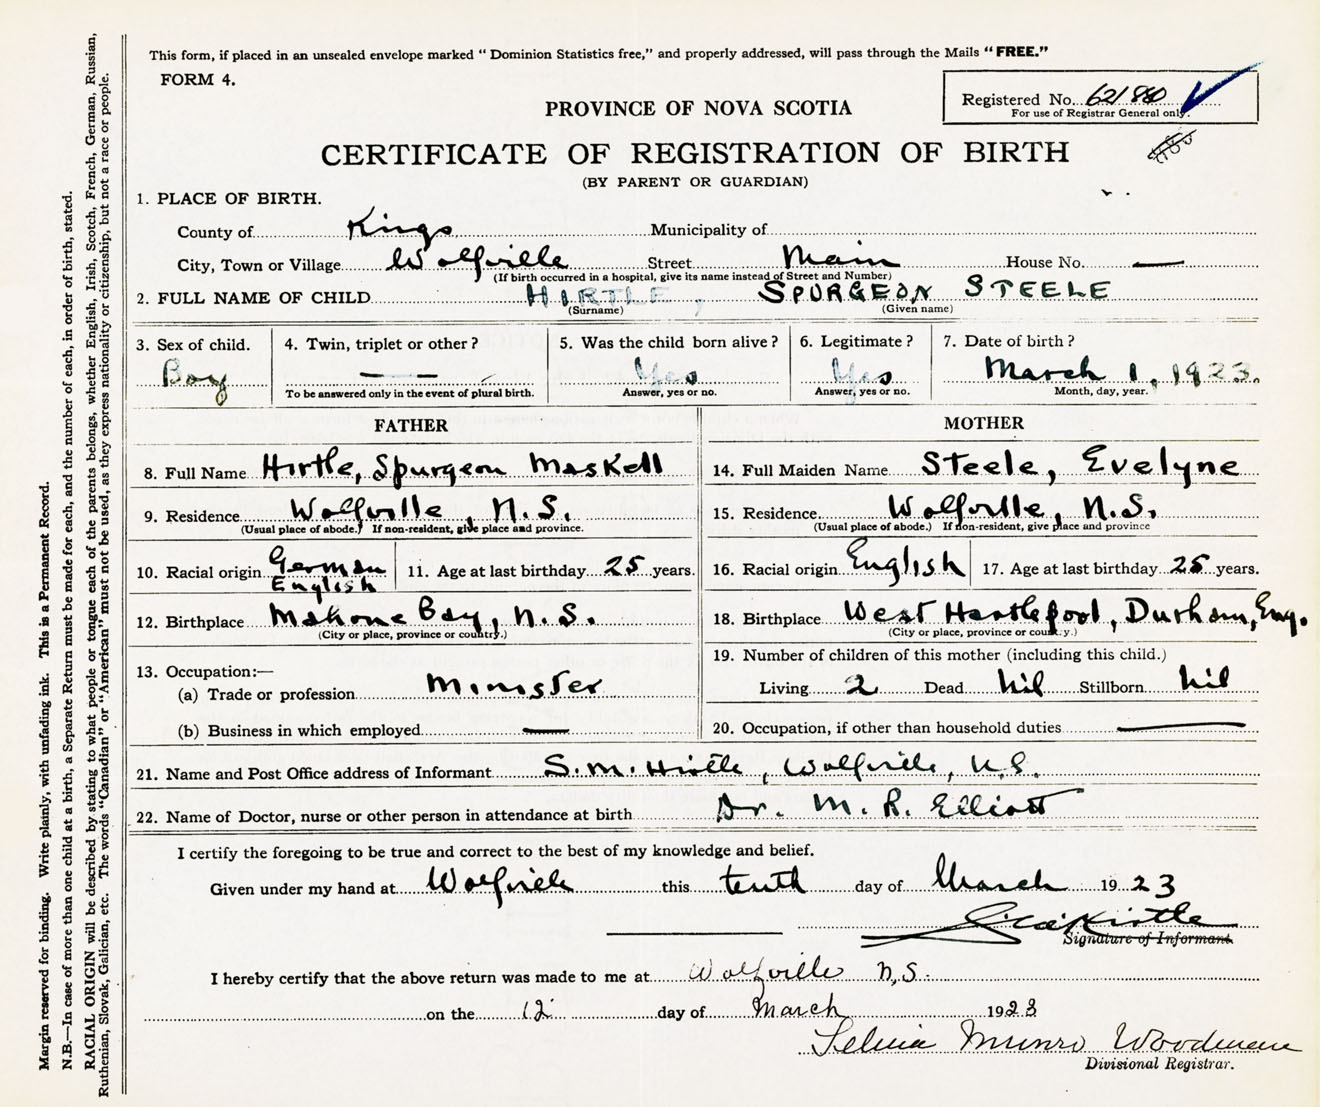 This form, if placed in an unsealed envelope marked " Dominion Statistics free," and properly addressed, will pass through the Mails "FREE."
FORM 4.
Registered No. 621880
For use of Registrar General only.
PROVINCE OF NOVA SCOTIA
CERTIFICATE OF REGISTRATION OF BIRTH
(BY PARENT OR GUARDIAN)
1. PLACE OF BIRTH.
County of Kings Municipality of
City, Town or Village Wolfville Street Main House No. —
(If birth occurred in a hospital, give its name instead of Street and Number)
2. FULL NAME OF CHILD HIRTLE, SPURGEON STEELE
(Surname) (Given name)
3. Sex of child. 4. Twin, triplet or other? 5. Was the child born alive? 6. Legitimate? 7. Date of birth?
Boy — Yes Yes March 1, 1923.
To be answered only in the event of plural birth. Answer, yes or no. Answer, yes or no. Month, day, year.
FATHER
8. Full Name Hirtle, Spurgeon Maskell
9. Residence Wolfville, N.S.
(Usual place of abode.) If non-resident, give place and province.
10. Racial origin German English 11. Age at last birthday 25 years.
12. Birthplace Mahone Bay, N.S.
(City or place, province or country.)
13. Occupation:—
(a) Trade or profession Minister
(b) Business in which employed —
MOTHER
14. Full Maiden Name Steele, Evelyne
15. Residence Wolfville, N.S.
(Usual place of abode.) If non-resident, give place and province
16. Racial origin English 17. Age at last birthday 25 years.
18. Birthplace West Hartlepool, Durham, Eng.
(City or place, province or country.)
19. Number of children of this mother (including this child.)
Living 2 Dead nil Stillborn nil
20. Occupation, if other than household duties —
21. Name and Post Office address of Informant S.M. Hirtle, Wolfville, N.S.
22. Name of Doctor, nurse or other person in attendance at birth Dr. M. R. Elliott
I certify the foregoing to be true and correct to the best of my knowledge and belief.
Given under my hand at Wolfville this tenth day of March 1923
Hirtle
Signature of Informant.
I hereby certify that the above return was made to me at Wolfville N.S.
on the 12 day of March 1923
Munro Woodman
Divisional Registrar.
Margin reserved for binding. Write plainly, with unfading ink. This is a Permanent Record.
N.B.—In case of more than one child at a birth, a Separate Return must be made for each, and the number of each, in order of birth, stated.
RACIAL ORIGIN will be described by stating to what people or tongue each of the parents belongs, whether English, Irish, Scotch, French, German, Russian,
Ruthenian, Slovak, Galician, etc. The words "Canadian" or "American" must not be used, as they express nationality or citizenship, but not a race or people.